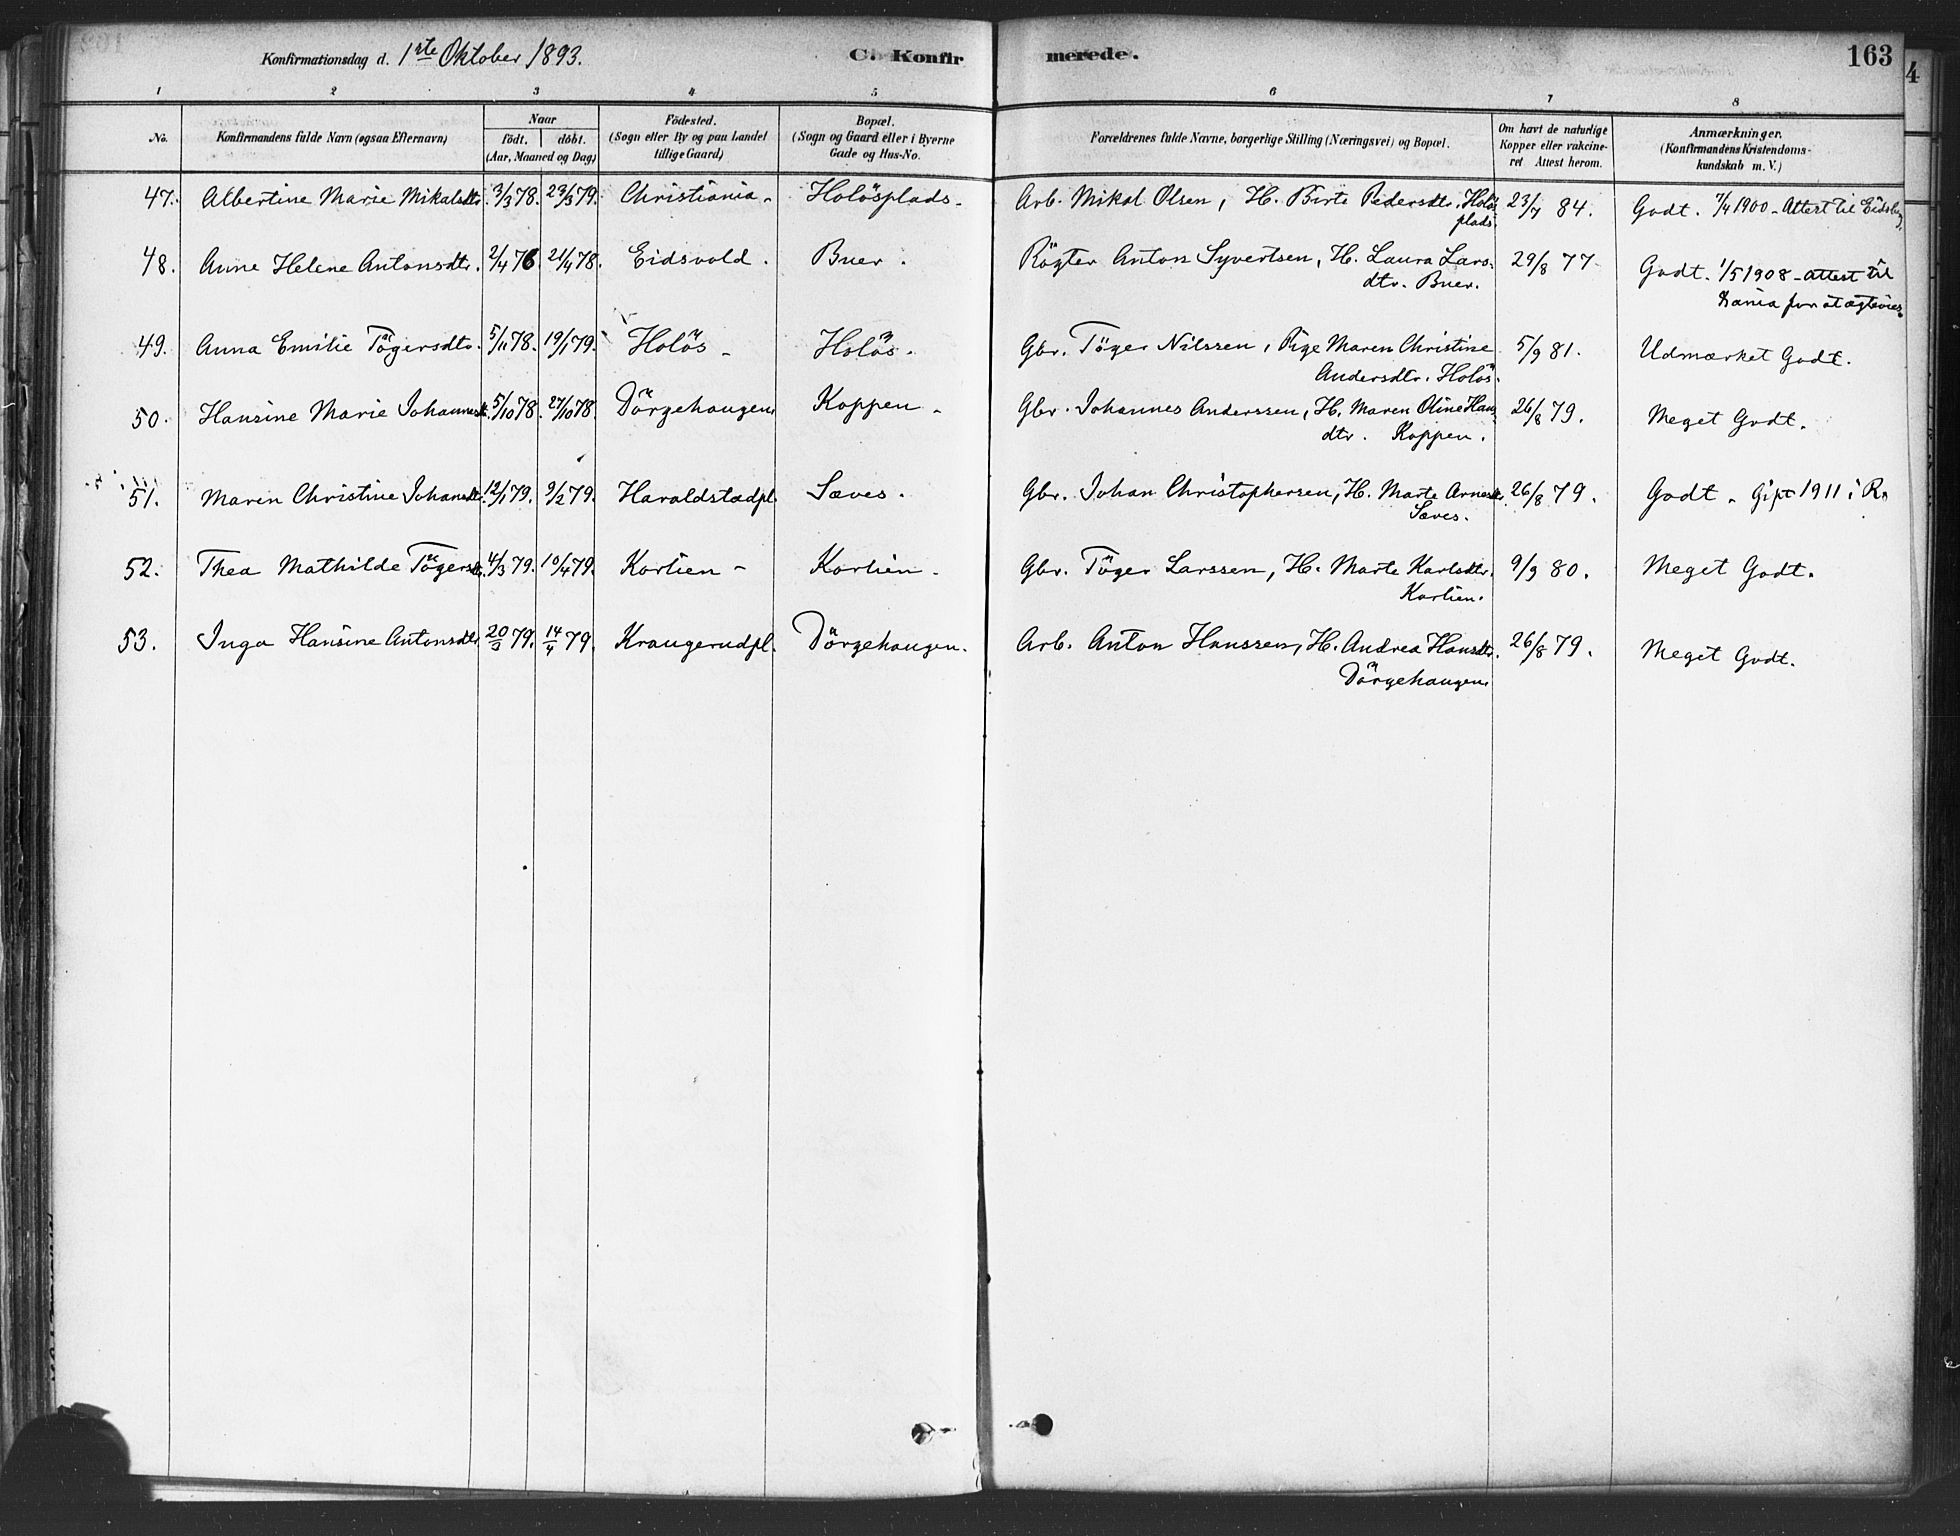 Konfirmationsdag d. 1ste Oktober 1893. C. Konfirmerede. 163
1 2 3 4 5 6 7 8
No. Konfirmandens fulde Navn (ogsaa Efternavn) Naar født. døbt. (Aar, Maaned og Dag) Fødested. (Sogn eller By og paa Landet tillige Gaard) Bopæl. (Sogn og Gaard eller i Byerne Gade og Hus-No. Forældrenes fulde Navne, borgerlige Stilling (Næringsvei) og Bopæl. Om havt de naturlige Kopper eller vakcineret Attest herom. Anmærkninger. (Konfirmandens Kristendomskundskab m. V.)
47. Albertine Marie Mikalsdtr. 3/3 78. 23/3 79. Christiania. Holösplads. Arb. Mikal Olsen, H. Birte Pedersdtr. Holös 23/7 84. Godt. 7/4 1900 - Attest til
plads.
48. Anne Helene Antonsdtr. 2/4 78. 21/4 78. Eidsvold. Buer. Rögter Anton Syvertsen, H. Laura Lars- 29/8 77 Godt. 1/5 1908 - attest til
dtr. Buer. for at ægtevies
49. Anna Emilie Tögersdtr. 5/11 78. 19/1 79. Holös Holös. Gbr. Töger Nilssen, Pige Maren Christine 5/9 81. Udmærket Godt.
Andersdtr. Holös.
50. Hansine Marie Johannesdt. 5/10 78. 27/10 78. Dörgehaugen Koppen Gbr. Johannes Anderssen, H. Maren Oline Hans 26/8 79. Meget Godt.
dtr. Koppen.
51. Maren Christine Johansdtr. 12/1 79. 9/2 79. Haraldstadpl. Sæves. Gbr. Johan Christophersen, H. Marte Arnesdtr. 26/8 79. Godt. Gift 1911 i R
Sæves.
52. Thea Mathilde Tögersdtr. 4/3 79. 10/4 79. Korlien Korlien. Gbr. Töger Larssen, H. Marte Karlsdtr. 9/9 80. Meget Godt.
Korlien.
53. Inga Hansine Antonsdtr. 20/2 79. 14/4 79. Kraugerudpl. Dörgehaugen. Arb. Anton Hanssen, H. Andrea Hansdtr. 26/8 79. Meget Godt.
Dörgehaugen